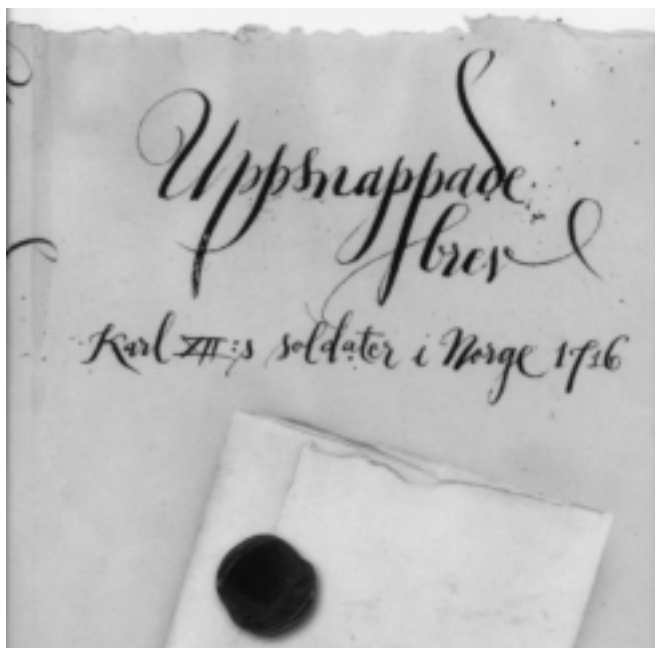 Uppsnappade
brev
Karl XII:s soldater i Norge 1716